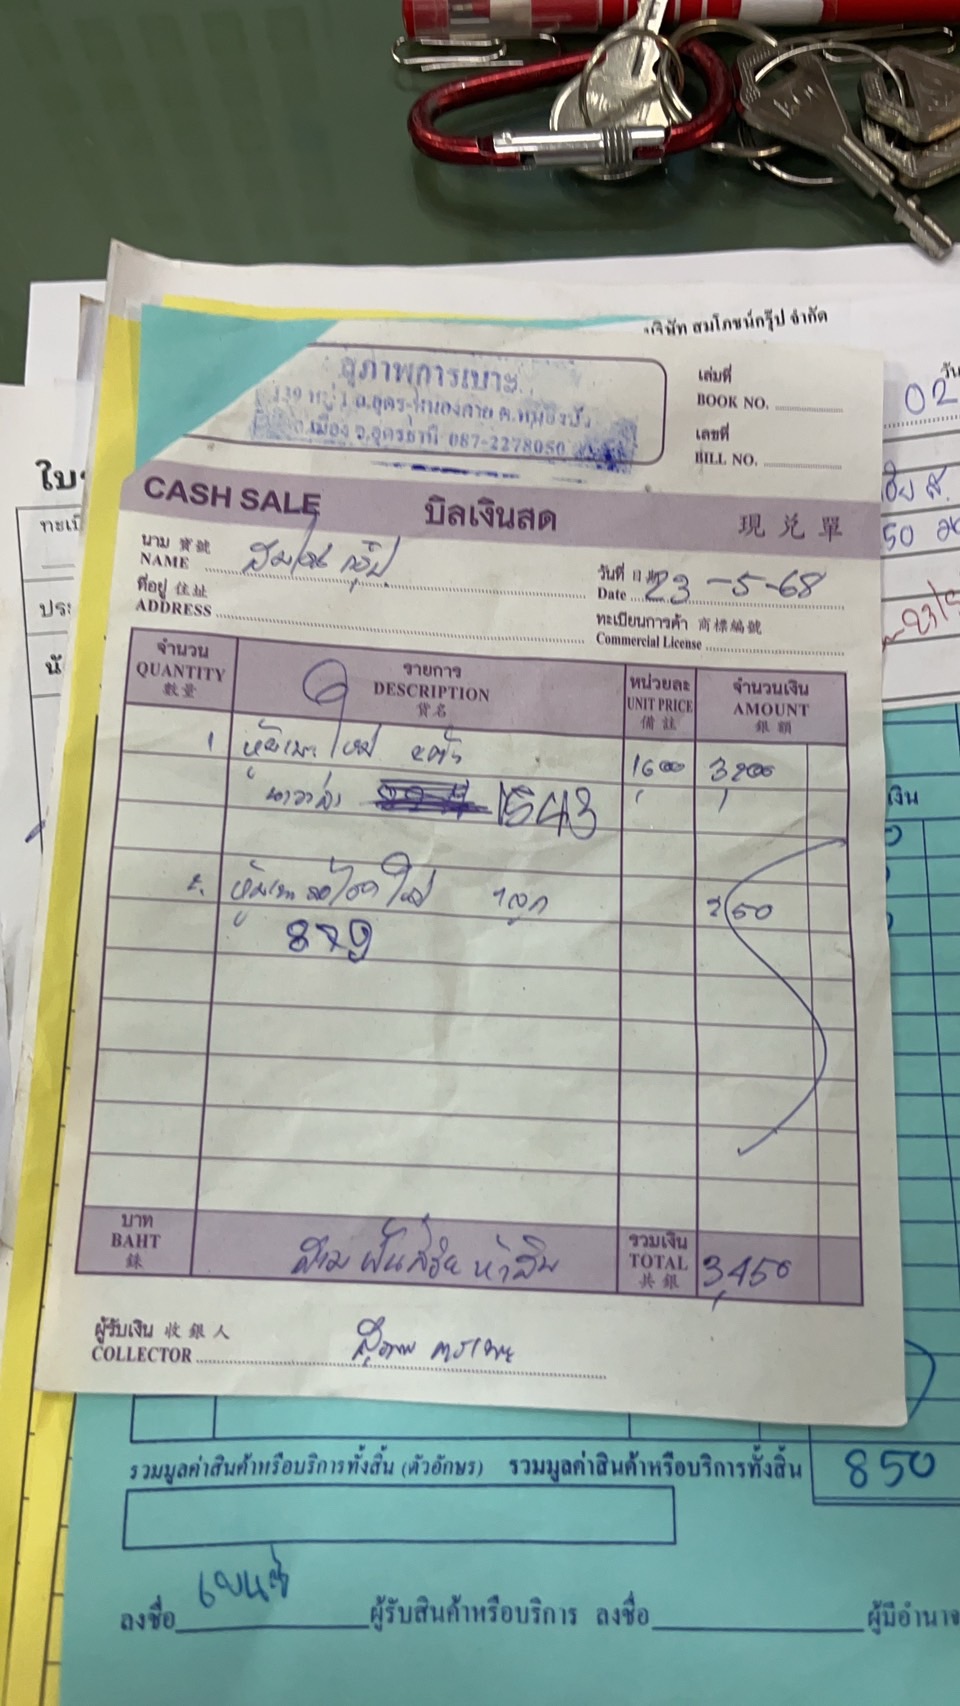 บริษัท สมโภชน์กรุ๊ป จำกัด
วัน
02
สุภาพการเบาะ
139 หมู่ 1 ถ.อุดร-หนองคาย ต.หมูม่น
อ.เมือง จ.อุดรธานี 087-2278050
เล่มที่
BOOK NO.
เลขที่
BILL NO.
ใบ
CASH SALE บิลเงินสด 現兌單
50
ทะเบี
นาม 寶號
NAME
วันที่ 日期
Date 23-5-68
ที่อยู่ 住址
ADDRESS
ทะเบียนการค้า 商標編號
Commercial License
ประ
จำนวน รายการ หน่วยละ จำนวนเงิน
QUANTITY DESCRIPTION UNIT PRICE AMOUNT
數量 貨名 備註 銀額
1 หุ้มเบาะใหม่ 2 ตัว 1,600 3,200
1543
เงิน
2. 1 ลูก 250
879
บาท รวมเงิน
BAHT สามพันสี่ร้อยห้าสิบ TOTAL 3,450
銖 共銀
ผู้รับเงิน 收銀人
COLLECTOR สุภาพ การเบาะ
รวมมูลค่าสินค้าหรือบริการทั้งสิ้น (ตัวอักษร) รวมมูลค่าสินค้าหรือบริการทั้งสิ้น 850
ลงชื่อ ผู้รับสินค้าหรือบริการ ลงชื่อ ผู้มีอำนาจ